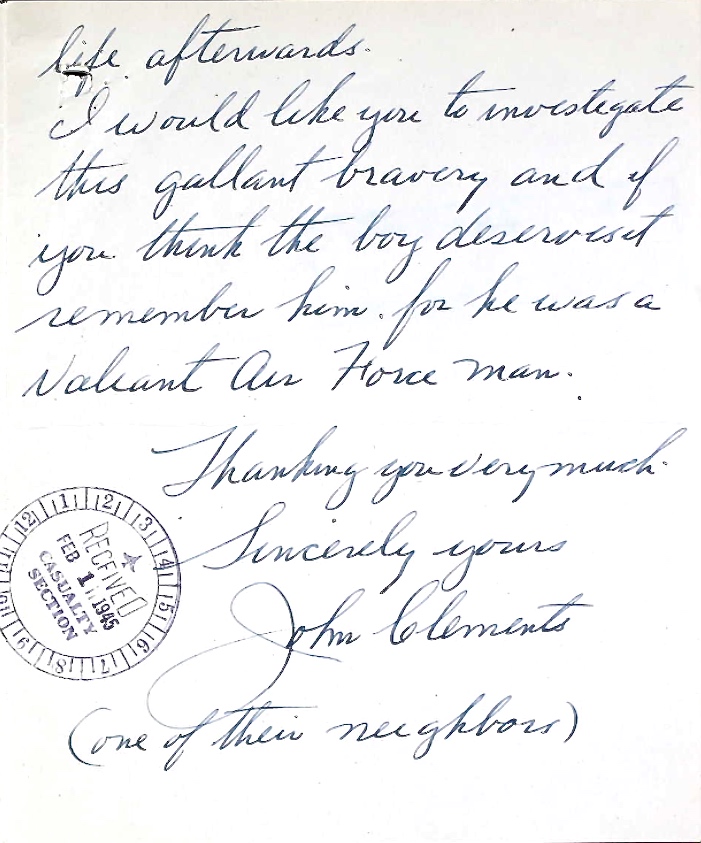 life afterwards.
I would like you to investigate
this gallant bravery and if
you think the boy deserves it
remember him. for he was a
Valiant Air Force man.
Thanking you very much.
Sincerely yours
John Clements
(one of their neighbors)
12 1 2 3 4 5 6 7 8 9 10 11
RECEIVED
FEB 1 1945
CASUALTY
SECTION